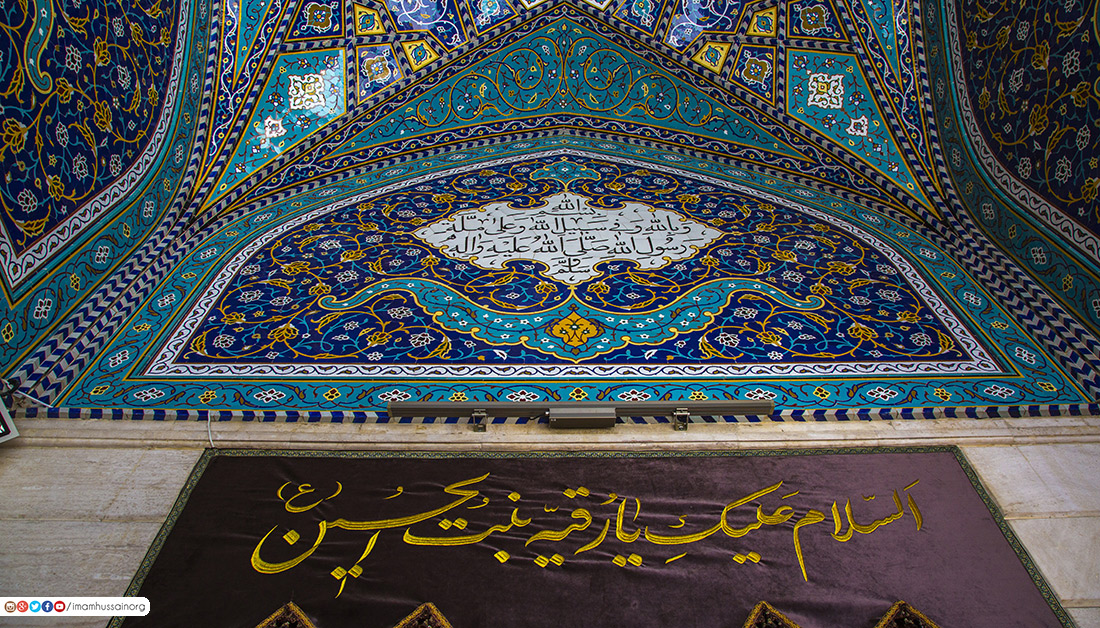 بسم الله
وبالله وفي سبيل الله وعلى ملة
رسول الله صلى الله عليه وآله
وسلم
السلام عليكِ يا رقيه بنت الحسين (ع)
/imamhussainorg